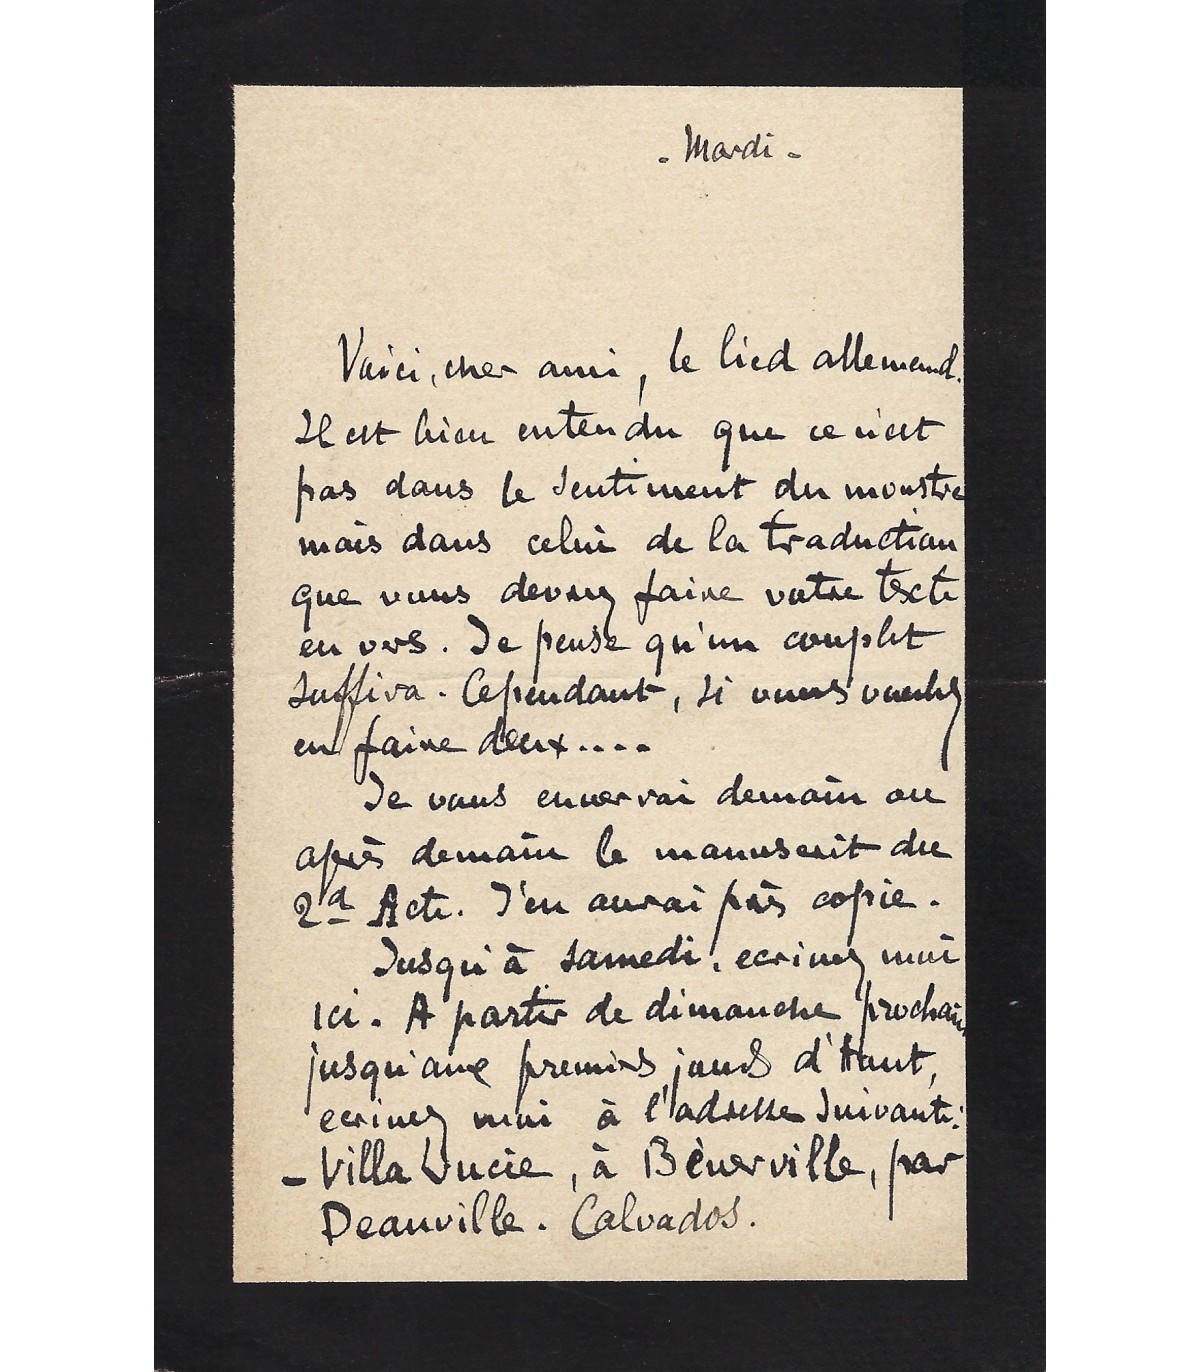 - Mardi -
Voici, cher ami, le lied allemand.
Il est bien entendu que ce n'est
pas dans le sentiment du monstre
mais dans celui de la traduction
que vous devrez faire votre texte
en vers. Je pense qu'un couplet
suffira. Cependant, si vous voulez
en faire deux....
Je vous enverrai demain ou
après demain le manuscrit du
2d Acte. J'en aurai pris copie.
Jusqu'à samedi, ecrivez moi
ici. A partir de dimanche prochain
jusqu'aux premiers jours d'Aout,
ecrivez moi à l'adresse suivante:
- Villa Lucie, à Bénerville, par
Deauville. Calvados.